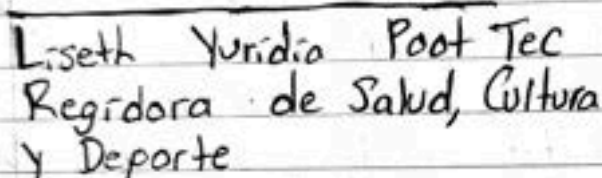 Liseth Yuridia Poot Tec
Regidora de Salud, Cultura
y Deporte